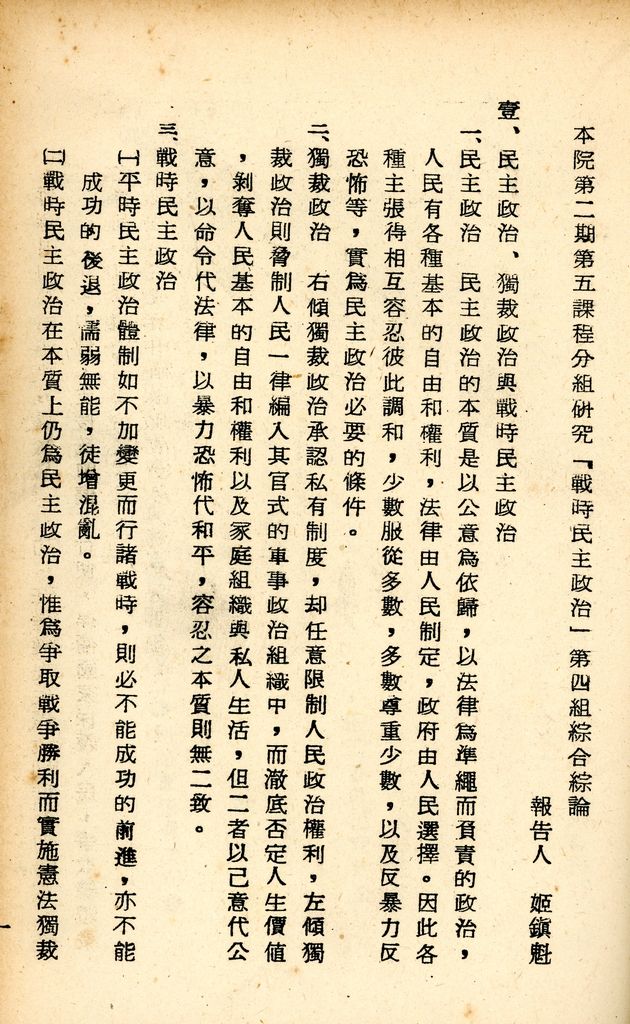 本院第二期第五課程分組研究「戰時民主政治」第四組綜合綜論
報告人　姬鎮魁
壹、民主政治、獨裁政治與戰時民主政治
一、民主政治　民主政治的本質是以公意為依歸，以法律為準繩而負責的政治，
人民有各種基本的自由和權利，法律由人民制定，政府由人民選擇。因此各
種主張得相互容忍彼此調和，少數服從多數，多數尊重少數，以及反暴力反
恐怖等，實為民主政治必要的條件。
二、獨裁政治　右傾獨裁政治承認私有制度，却任意限制人民政治權利，左傾獨
裁政治則脅制人民一律編入其官式的軍事政治組織中，而澈底否定人生價值
，剝奪人民基本的自由和權利以及家庭組織與私人生活，但二者以己意代公
意，以命令代法律，以暴力恐怖代和平，容忍之本質則無二致。
三、戰時民主政治
㈠平時民主政治體制如不加變更而行諸戰時，則必不能成功的前進，亦不能
成功的後退，需弱無能，徒增混亂。
㈡戰時民主政治在本質上仍為民主政治，惟為爭取戰爭勝利而實施憲法獨裁